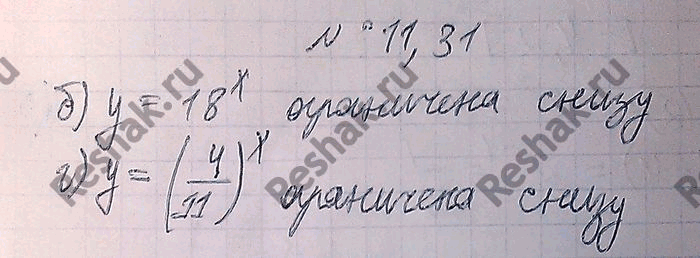 № 11,31
б) y = 18^x ограничена снизу
г) y = (4/11)^x ограничена снизу
Reshak.ru
Reshak.ru
Reshak.ru
Reshak.ru